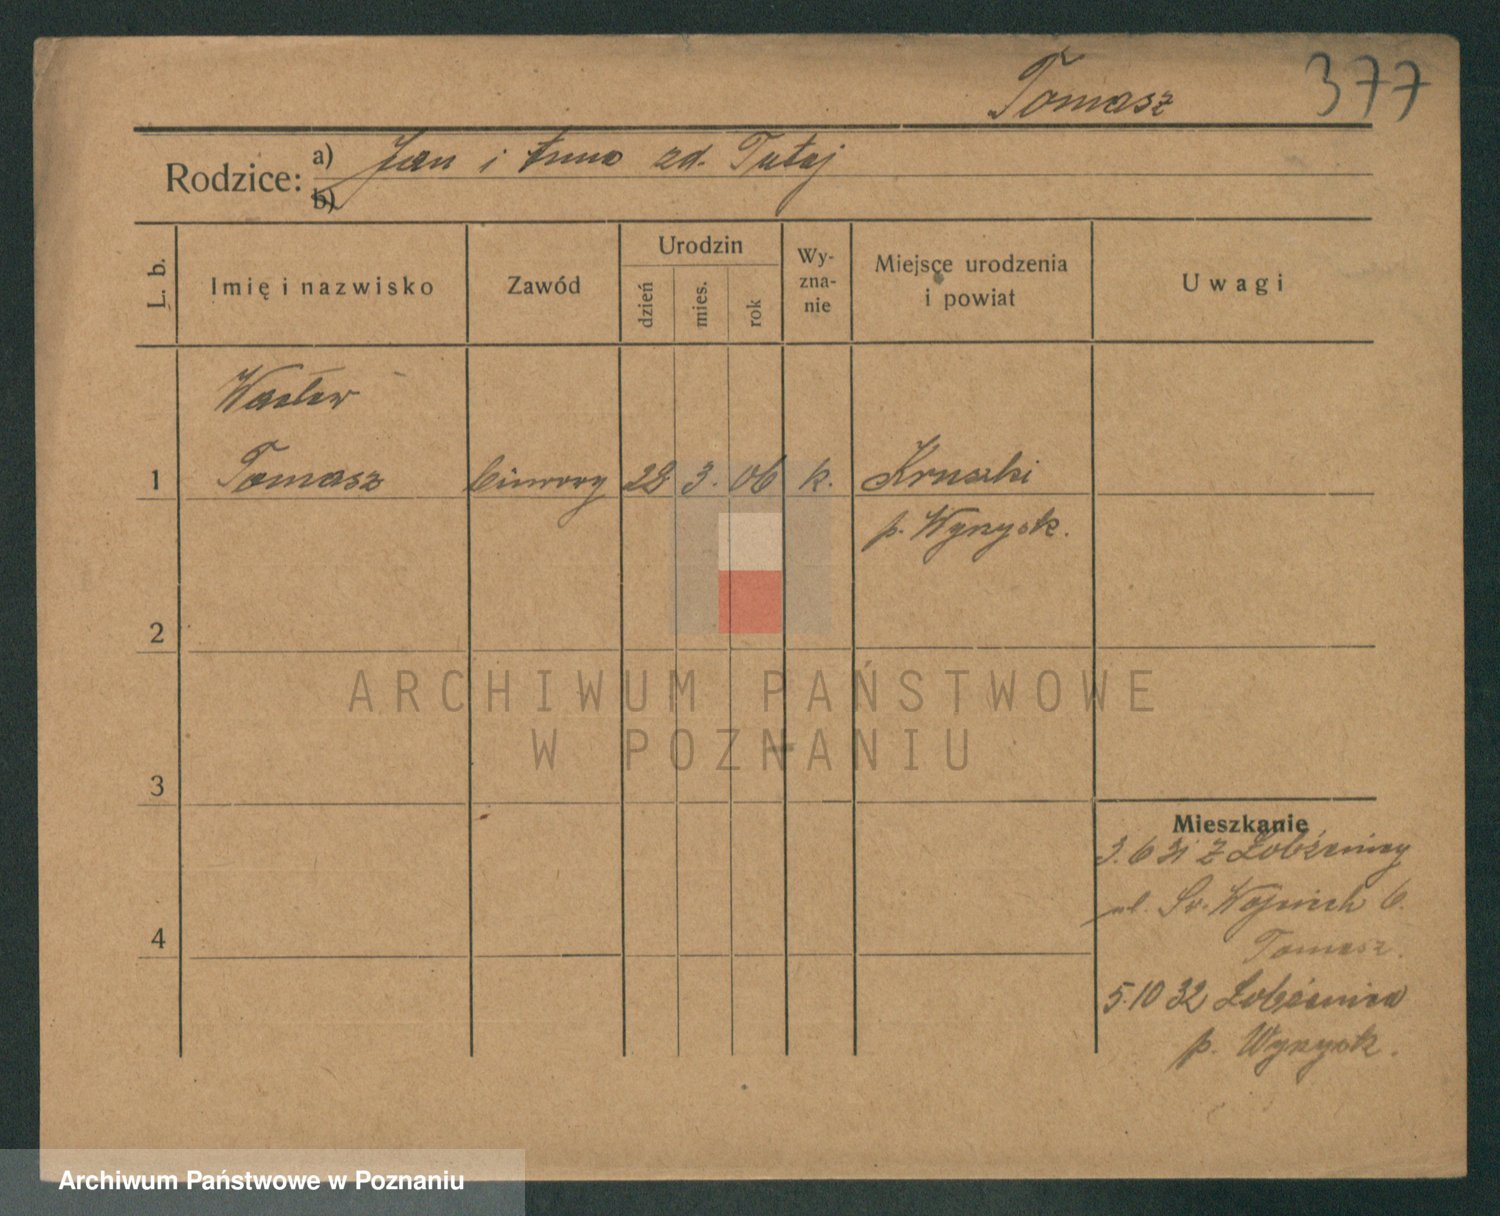 Tomasz 377
Rodzice: a) Jan i Anna zd. Tutaj
b)
L. b.
Imię i nazwisko
Zawód
Urodzin
dzień
mies.
rok
Wy-
zna-
nie
Miejsce urodzenia
i powiat
Uwagi
Wacław
1 Tomasz biurowy 28 3. 06 k. Kruszki
p. Wyrzysk.
2
3
4
Mieszkanie
3.6 31 z Łobżenicy
ul. Św. Wojciech 6.
Tomasz.
5.10 32 Łobżenica
p. Wyrzysk.
ARCHIWUM PAŃSTWOWE
W POZNANIU
Archiwum Państwowe w Poznaniu